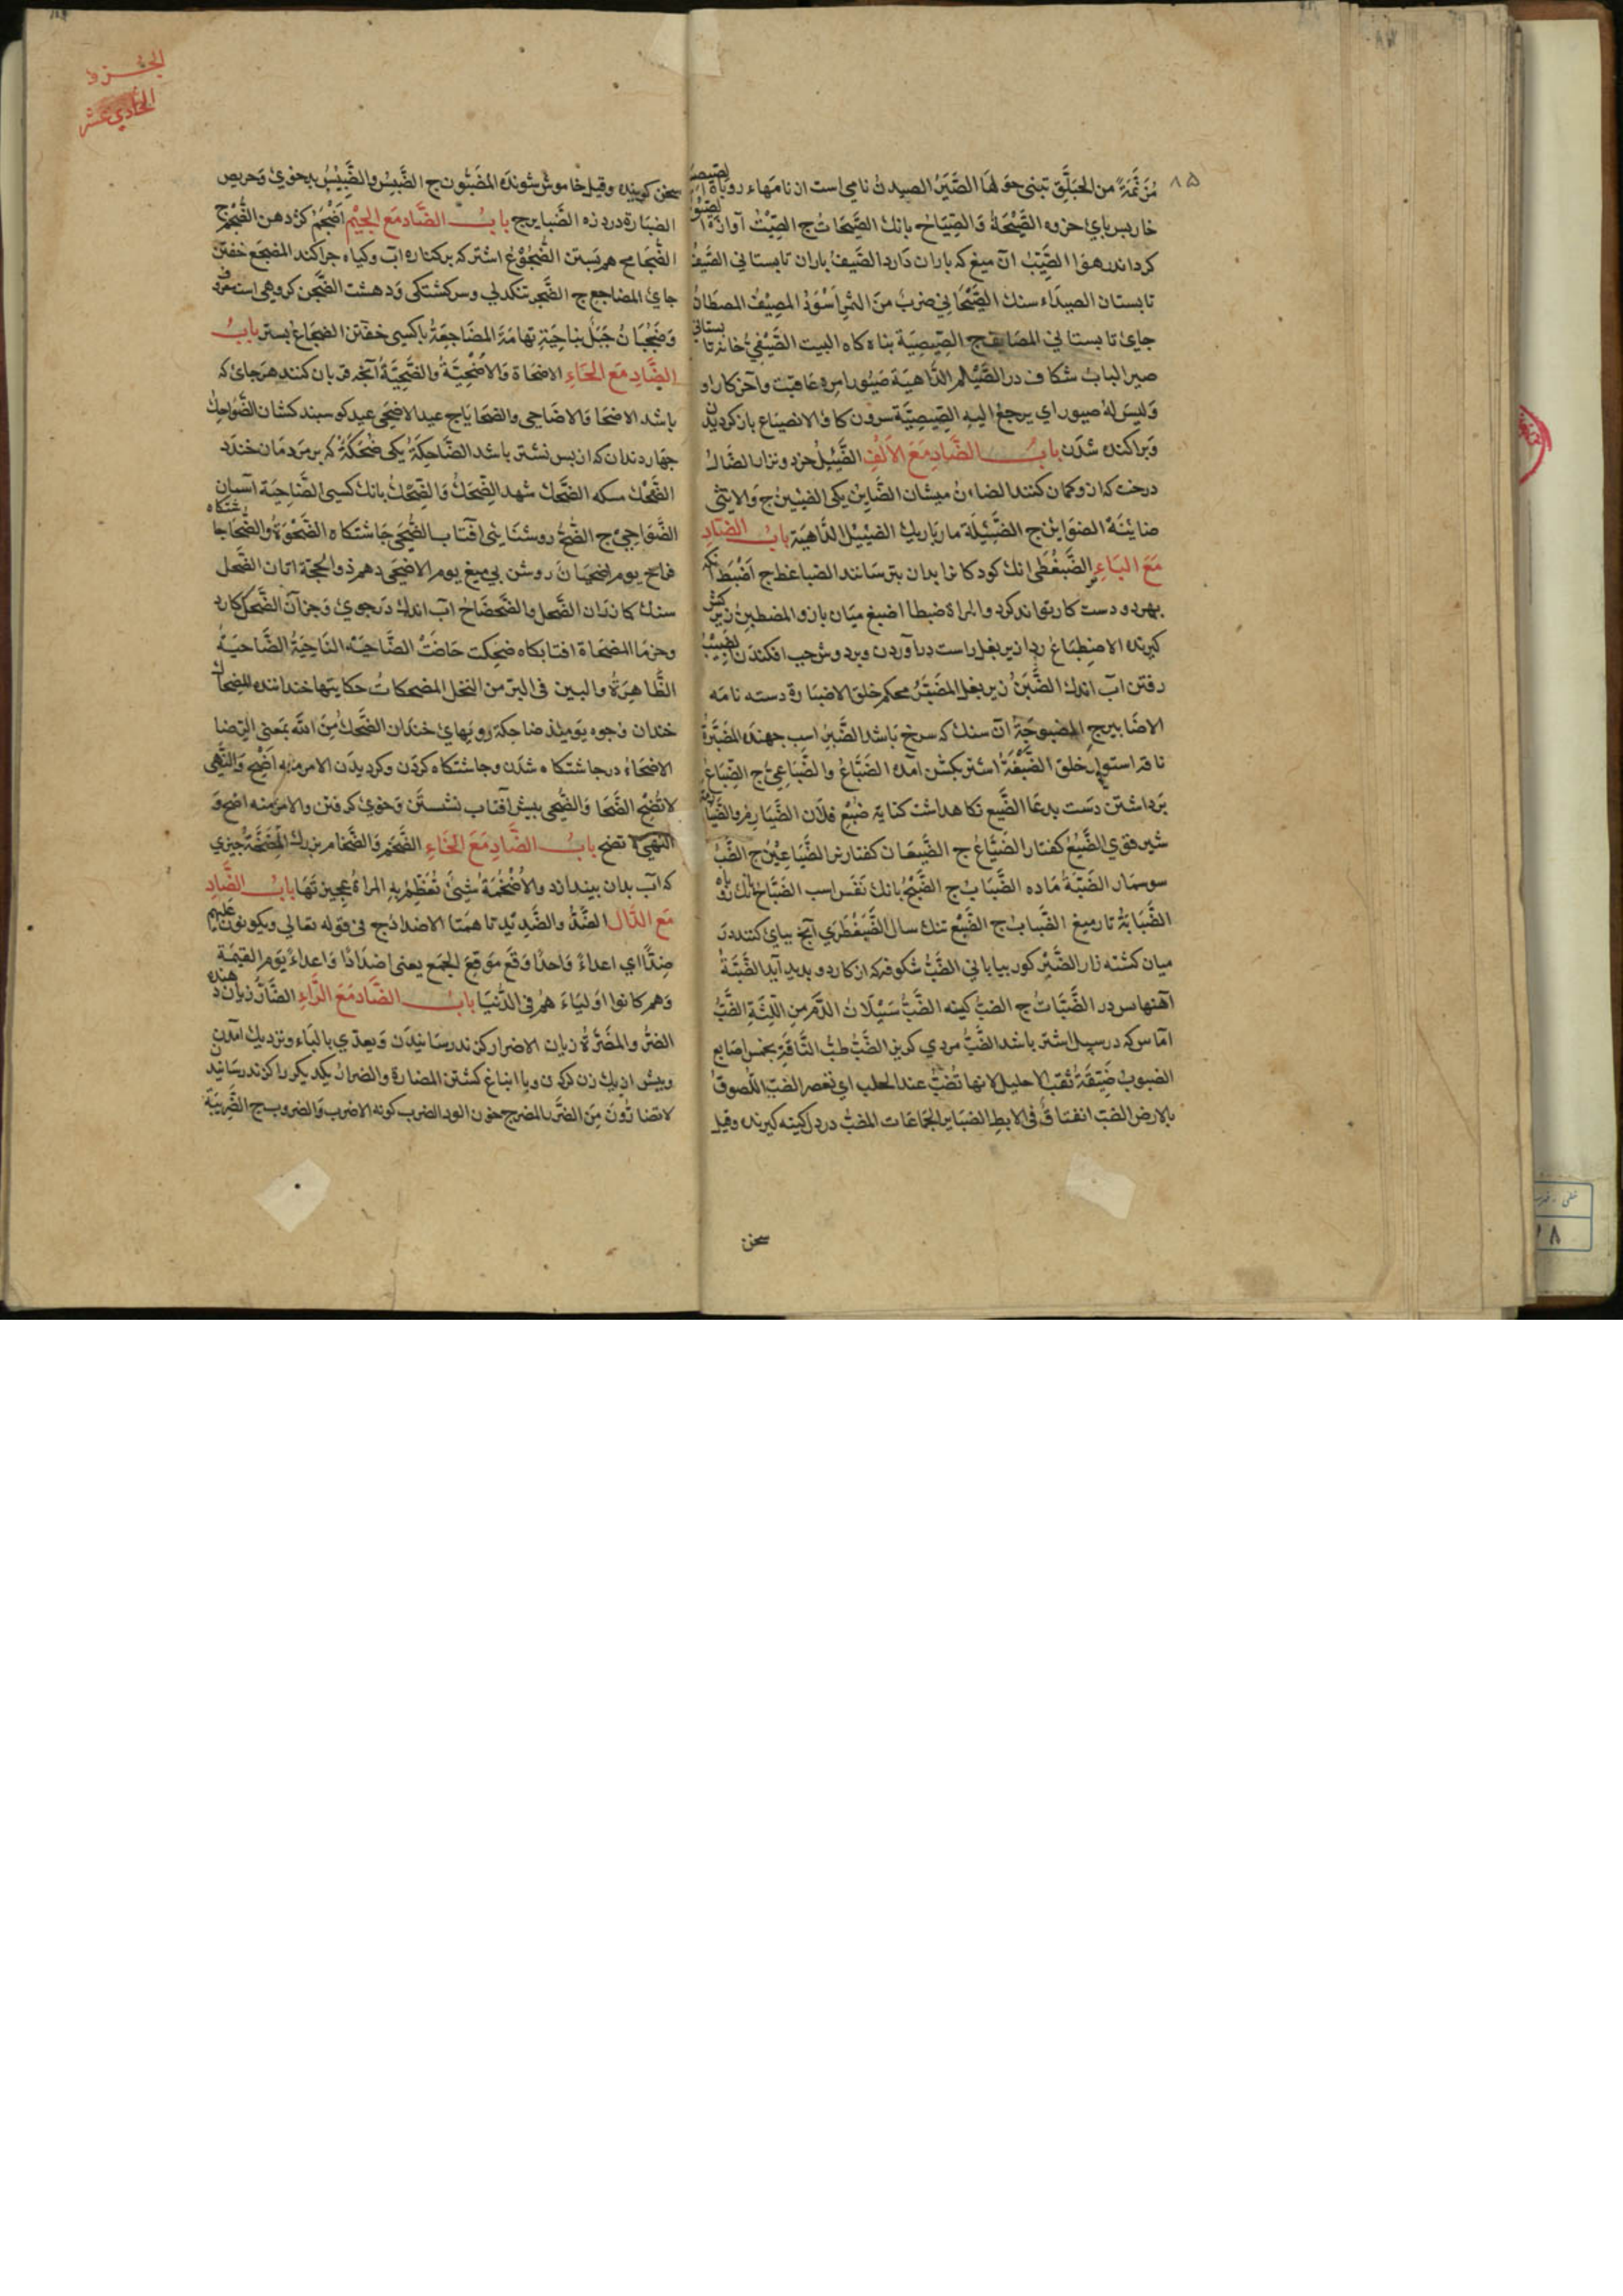 ۸۵
مُزَنَّمَةً من الحَبَلَّقِ تبنى حو لهَا الصَّيَرُ الصيدن نامی است از نامهاء روباه
خار بس پاي خروه الصَّيْحَةُ وَالصِّيَاح بانك الصَّيْحَات ج الصِّيْتُ آوازه
كرد اندر هوا الصَّيِّبُ آن ميغ كه باران دارد الصَّيِّف باران تابستاني الصَّيفُ
تابستان الصيداء سنك الصَّيْحَانِي ضربٌ منَ التمرِ اَسْوَدُ المصِيْفُ المصطَافُ
جايِ تابستاني المصَايف ج الصِيصِيَة بناه كاه البيت الصَّيْفِيُّ خانه تابستاني
صير الباب شكاف در الصَّيْلم الدَّاهيَة صَيُّور امره عَاقبت وآخر كار او
وَليسَ لهُ صيور اي يرجعُ اليهِ الصِيصِيَّة سرون كاو الانصيَاع باز كرديدن
وَپراكنده شدَن بابُ الضَّادِ مَعَ الاَلفِ الضَّئِيْلُ خرد و نزار الضَال
درخت كه از و كمان كنند الضَاءن ميشان الضَّاين يكى الضئين ج وَالانثى
ضاينَةٌ الضوَاين ج الضَّئِيْلَة مار باريك الضئبيل الدَّاهيَة بابُ الضّادِ
مَعَ البَاءِ الضَّبَغْطَى انك كودكانرا بدان بترسانند الضباغط ج اَضْبَط آنكه
بهر دو دست كار تواند كرد والمراة ضبطا اضبع ميان بازو المضطبع زير كش
كيرنده الاضطِبَاعُ ردا زير بغل راست درآوردن وبر دوش چپ افكندن الضَبِيْبُ
رفتن آب اندك الضَّبَنُ زير بغل المضَبَّرُ محكم خلق الاضبَارَة دسته نامَه
الاضَابير ج المضبوحَة آن سنك كه سرخ بَاشد الضَّبِرُ اسپ جهنده المضَبَّرَةُ
ناقه استوار خلق الضَّبْعَةُ اشتر بكشن آمده الضَبَّاعُ والضَّبَاعِىُّ ج الضِّبَاعُ
بَرداشتن دسَت بدعَا الضَّبع نكاهداشت كناية ضَبْعِ فلَان الضُّبَارِمُ والضُّبَارِمَةُ
شير قوي الضَّبُعُ كفتار الضِبَاعُ ج الضِّبعَان كفتار نر الضَّبَاعِيْن ج الضَّبُّ
سوسمار الضَبَّةُ مَاده الضَّبَابُ ج الضَّبْحُ بانك نَفَس اسب الضُبَاحُ بانك روباه
الضَّبَابَةُ تار ميغ الضَّبابُ ج الضَّبْع تنك سال الضَّبَغْطَرَي آنچ بپاي كنند در
ميان كشته زار الضَّبْر كوز بياباني الضَّبُّ شكوفه كه از كاردو بديد آيد الضَّبَّةُ
آهنها سر در الضَّبَّاتُ ج الضبُّ كينه الضَّبُّ سَيْلَانُ الدَّمِ مِنَ اللِّثَةِ الضَّبُّ
امَاس كه در سپل اشتر باشد الضَبُّ مردي كربز الضَّبُّ حلبُ النَّاقَةِ بخمس اصَابع
الضبوبُ ضَيِّقَةُ ثقبُ الاحليل لانها تُضَبُّ عند الحلب اي تعصر الضَبّ اللُّصوقُ
بالارض الضبّ انفتاقٌ في الابطِ الضبَاير الجمَاعات المضبُّ در دل كينه كيرنده وقيل
سخن
الجزو
الحادي عشر
سخن كوينده وقيل خاموش شونده المضَبّون ج الضَّبِسُ والضَّبِيْسُ بدخوي وَحريص
الضبَارة درد زه الضَّباير ج بابُ الضَّاد مَع الجِيْمِ اَضْجَمُ كژ دهن الضُّجْم ج
الضُّجَاج مهر بَستن الضُّجُوْعُ اشتر كه بر كناره آب وكياه چرا كند المضجَع خفتن
جايِ المضاجع ج الضَّجر تنكدلي وسر كشتكى وَدهشت الضَّجِن كروهی است معرف
وَضَجْنَانُ جَبَلٌ بنَاحِيَةِ تهَامَة المضَاجعَةُ باكسى خفتن الضجَاعُ بستر بابُ
الضَّادِ مَعَ الحَاءِ الاضحَاة وَالاُضْحِيَّةُ والضَّحِيَّةُ آنچه قربان كنند هر جاى كه
باشد الاضحَا وَالاضَاحي والضحَايَا ج عيد الاضحَى عيد كوسبند كشان الضَّوَاحِكُ
چهار دندان كه از پس نشتر باشد الضَّاحِكَةُ يكى ضُحَكَةُ كه بر مردمَان خندد
الضَّحْكُ مسكه الضَّحكُ شهد الضِّحكُ وَالضَّحْكُ بانك كسى الضَّاحِيَة آسمان
الضَّوَاحِيْ ج الضِّحُّ روشنَايى افتاب الضُّحَى چَاشتكاه الضَّحْوَةُ والضَّحَا چاشتكاه
فراخ يوم اضحِيَانٌ روشن بي ميغ يوم الاضحى دهم ذوالحجّة اتان الضَّحل
سنك كازران الضَّحل والضَّحضَاح آب اندك دَر جوي وَجز آن الضَّحك كارد
وخرمَا المضحَاة افتابكاه ضَحِكت حَاضَتْ الضَّاحيَة النَاحيَةُ الضَّاحيَةُ
الظَّاهِرَةُ والبين في البّر من النخل المضحكات حكايتها خنداننده المضحَاك
خندان وُجوه يَوميئذ ضاحِكة رويهايِ خندان الضَّحك مِنَ اللّه بمعنى الرّضا
الاضحَاءُ در چاشتكاه شدَن وچاشتكاه كردَن وكرديدَن الامر منه اَضْحِ وَالنَّهى
لا تُضحِ الضَّحَا وَالضُّحى بپيش آفتاب نشستَن وَخوي كرفتن والامر منه اضحَ وَ
النهى لا تضح بابُ الضَّادِ مَعَ الخَاءِ الضَّخم وَالضُّخام بزرك المِضَخَّةُ چيزي
كه آب بدان بيندازند والاُضْخُمَةُ شيئٌ تُعَظِّمُ بهِ المراةُ عجيزتَهَا بابُ الضَّادِ
مَع الدَّال الضِّدُّ والضَّديْدُ نا همتا الاضدادُ ج في قوله تعالى ويكونون عَليهم
ضِدًّا اي اعداءً وَاحدًا وَقَع مَوقع الجمَع يعنى اضدَادًا وَاعداءً يَوم القيمَة
وَهم كانوا اوليَاءَ هُم في الدُّنيَا بابُ الضَّادِ مَعَ الرَّاءِ الضَّارُّ زيان دهنده
الضُرُّ والمضَرَّةُ زيان الاضرار كزند رسَانيدَن وَيعدّي بالبَاء ونزديك آمدن
وبيش از يك زن كردن وبا انباغ كشتن المضَارة والضرارُ يكديكر را كزند رسَانيدن
لا تضارُّونَ مِنَ الضَّررِ المضرج خون آلود الضرب كونه الاضرب وَالضروب ج الضَّرِيْبَةُ